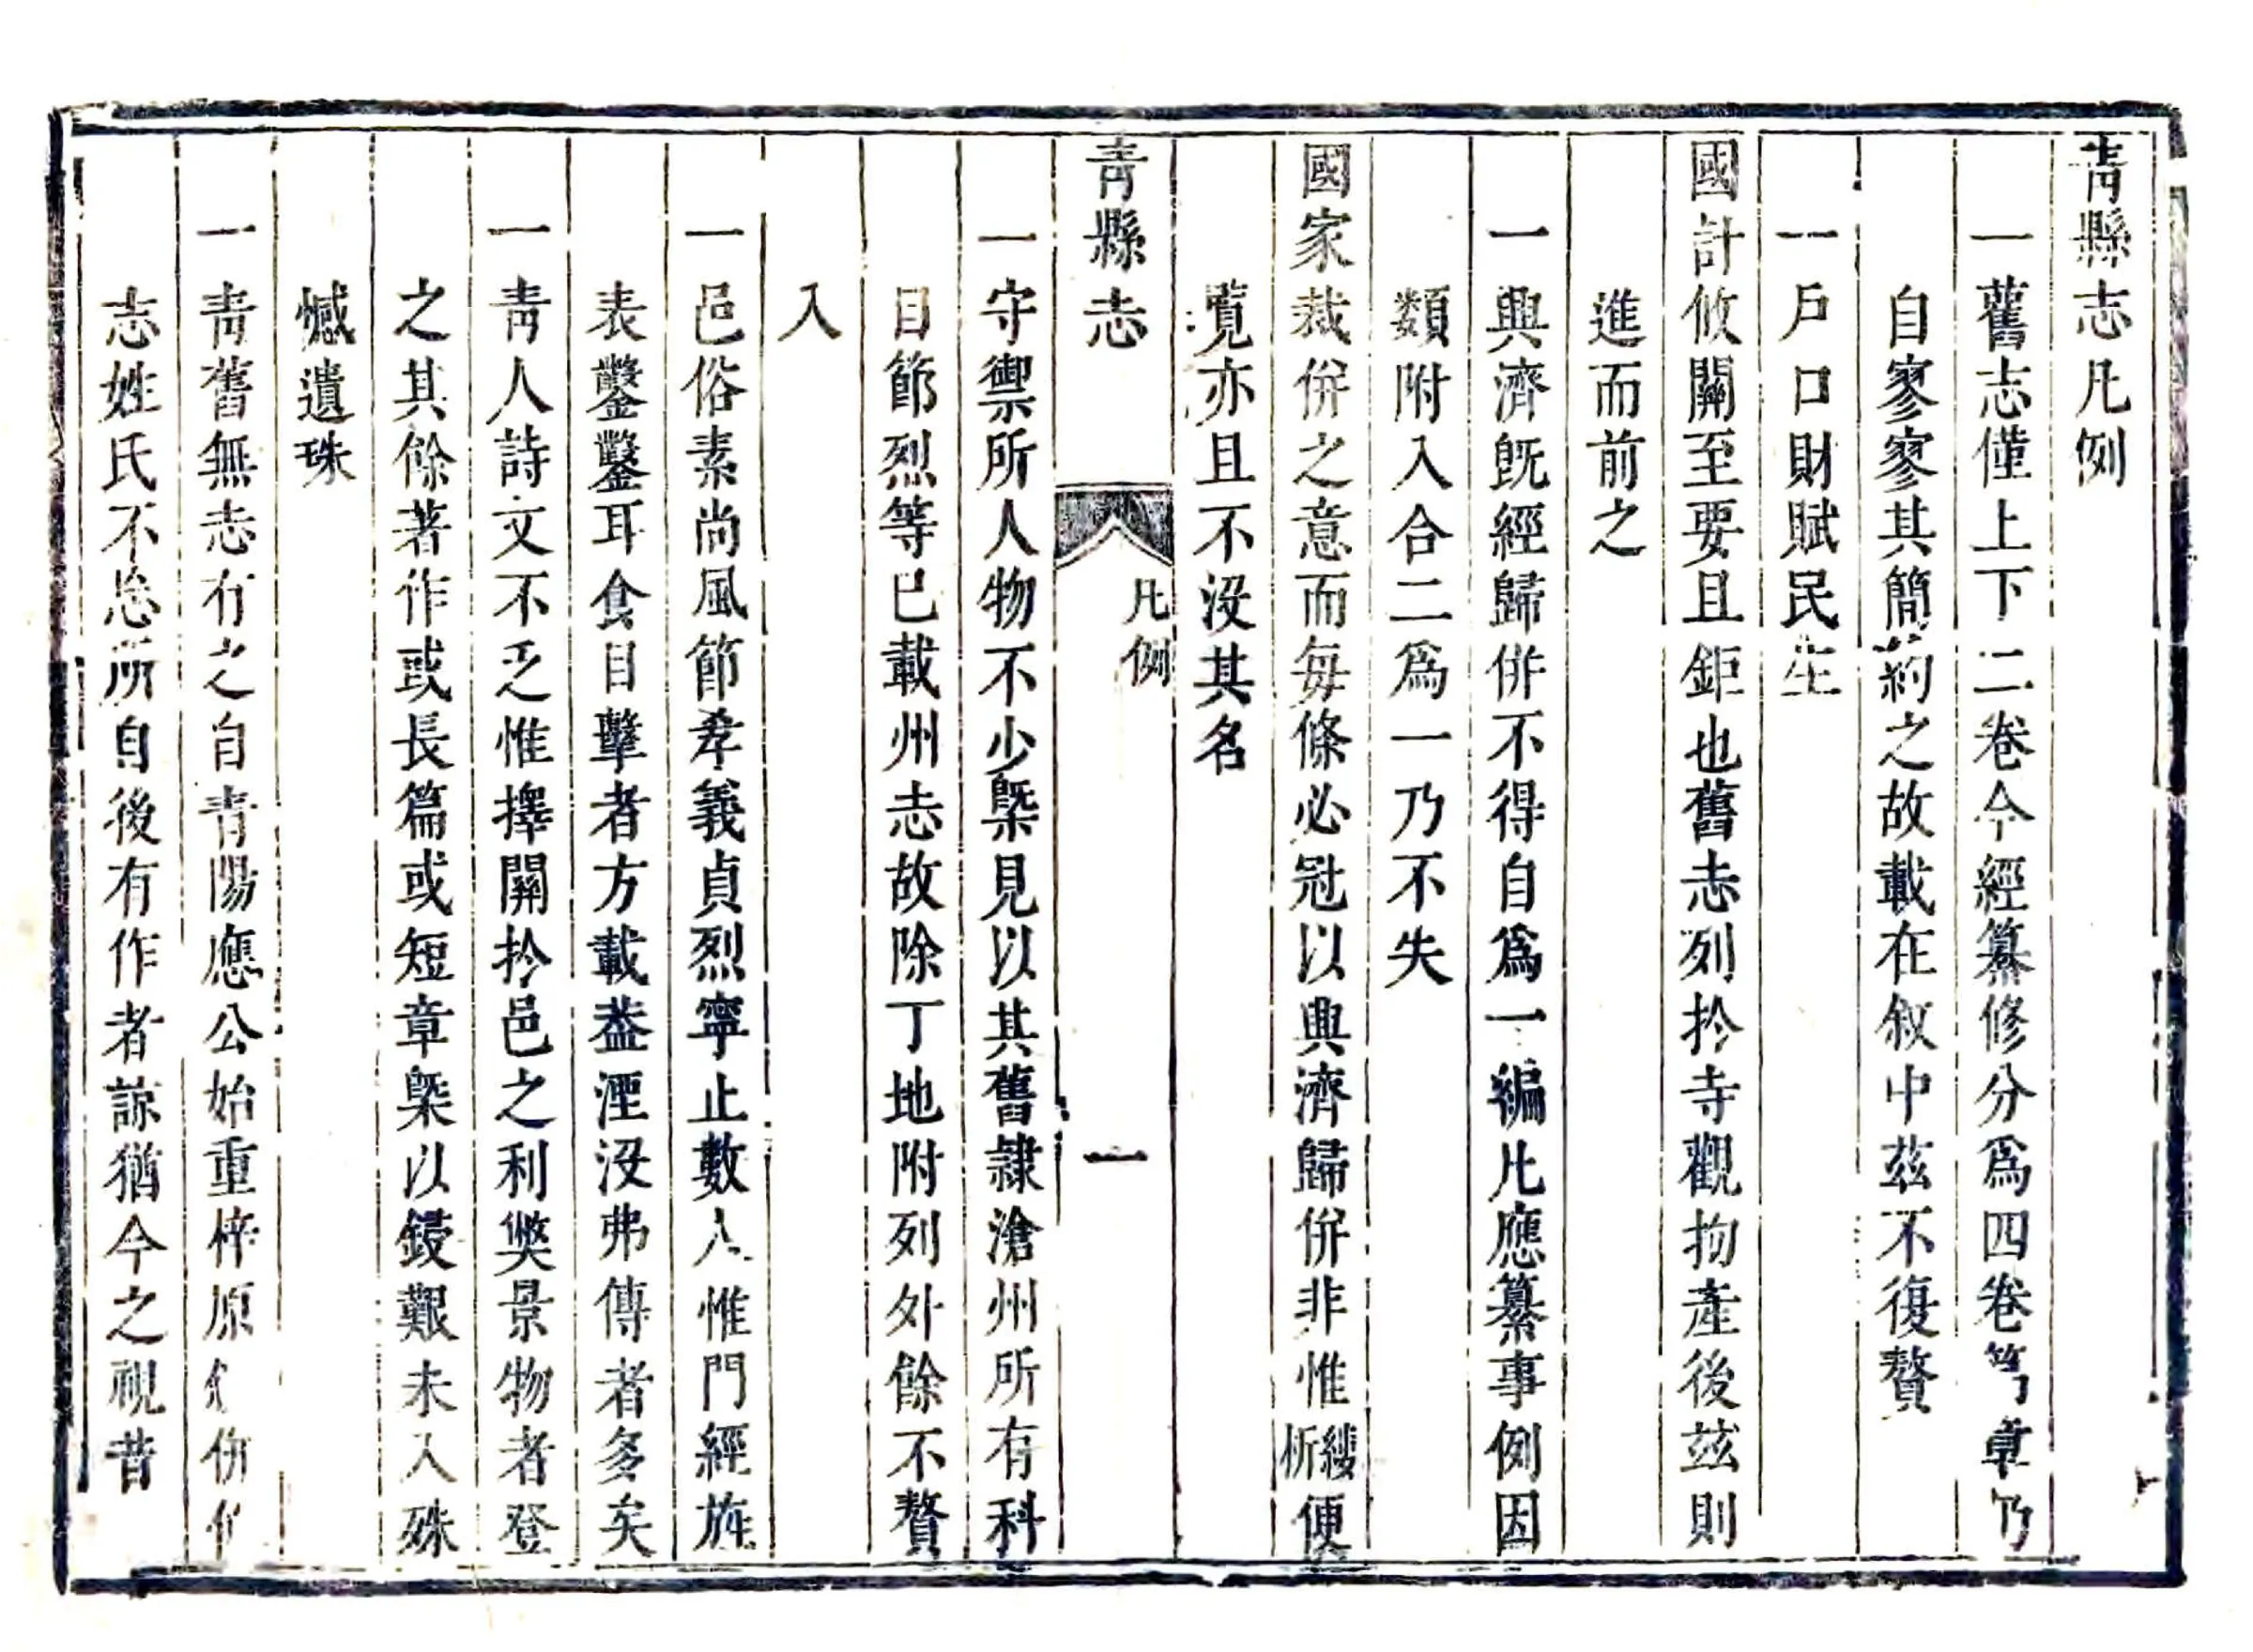 青縣志凡例
一舊志僅上下二卷今經纂修分爲四卷篇章乃
自寥寥其簡葯之故載在叙中茲不復贅
一戶口財賦民生
國計攸關至要且鉅也舊志列扵寺觀物產後茲則
進而前之
一興濟旣經歸併不得自爲一編凡應纂事例因
類附入合二爲一乃不失
國家裁併之意而每條必冠以興濟歸併非惟析縷便
覧亦且不没其名
青縣志 凡例 一
一守禦所人物不少槩見以其舊隷滄州所有科
目節烈等已載州志故除丁地附列外餘不贅
入
一邑俗素尚風節孝義貞烈寧止數人惟門經旌
表鑿鑿耳食目擊者方載葢湮没弗傳者多矣
一青人詩文不乏惟擇關扵邑之利獘景物者登
之其餘著作或長篇或短章槩以鋟艱未入殊
憾遺珠
一青舊無志有之自青陽應公始重梓原
志姓氏不忘所自後有作者諒猶今之視昔